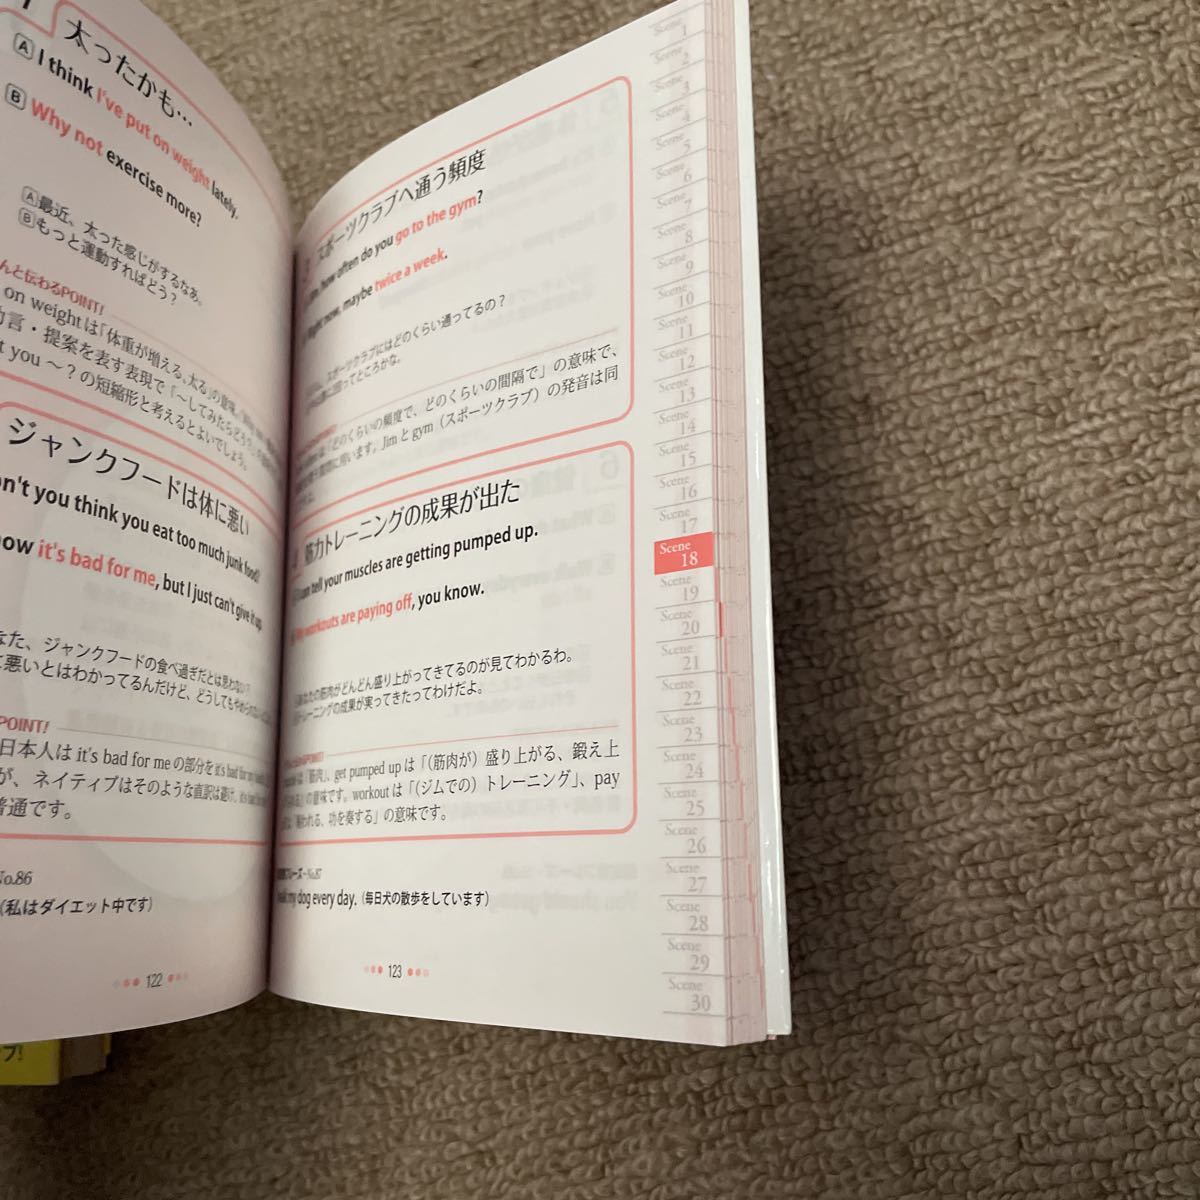 1 太ったかも…
A I think I've put on weight lately.
B Why not exercise more?
A 最近、太った感じがするなあ。
B もっと運動すればどう?
んと伝わるPOINT!
on weightは「体重が増える、太る」の意味。
言・提案を表す表現で「〜してみたらどう?」
t you 〜?の短縮形と考えるとよいでしょう。
ジャンクフードは体に悪い
n't you think you eat too much junk food?
now it's bad for me, but I just can't give it up.
なた、ジャンクフードの食べ過ぎだとは思わない?
悪いとはわかってるんだけど、どうしてもやめられない
POINT!
日本人は it's bad for me の部分を it's bad for my
が、ネイティブはそのような直訳は避け、it's bad for me
普通です。
No.86
(私はダイエット中です)
122
スポーツクラブへ通う頻度
how often do you go to the gym?
Right now, maybe twice a week.
スポーツクラブにはどのくらい通ってるの?
ってところかな。
「どのくらいの頻度で、どのくらいの間隔で」の意味で、
に用います。Jimとgym(スポーツクラブ)の発音は同
4 筋力トレーニングの成果が出た
can tell your muscles are getting pumped up.
My workouts are paying off, you know.
あなたの筋肉がどんどん盛り上がってきてるのが見てわかるわ。
トレーニングの成果が実ってきたってわけだよ。
は「筋肉」、get pumped upは「(筋肉が)盛り上がる、鍛え上
の意味です。workoutは「(ジムでの)トレーニング」、pay
「報われる、功を奏する」の意味です。
フレーズ-No.87
walk my dog every day.(毎日犬の散歩をしています)
123
Scene 1
Scene 2
Scene 3
Scene 4
Scene 5
Scene 6
Scene 7
Scene 8
Scene 9
Scene 10
Scene 11
Scene 12
Scene 13
Scene 14
Scene 15
Scene 16
Scene 17
Scene 18
Scene 19
Scene 20
Scene 21
Scene 22
Scene 23
Scene 24
Scene 25
Scene 26
Scene 27
Scene 28
Scene 29
Scene 30
プ!